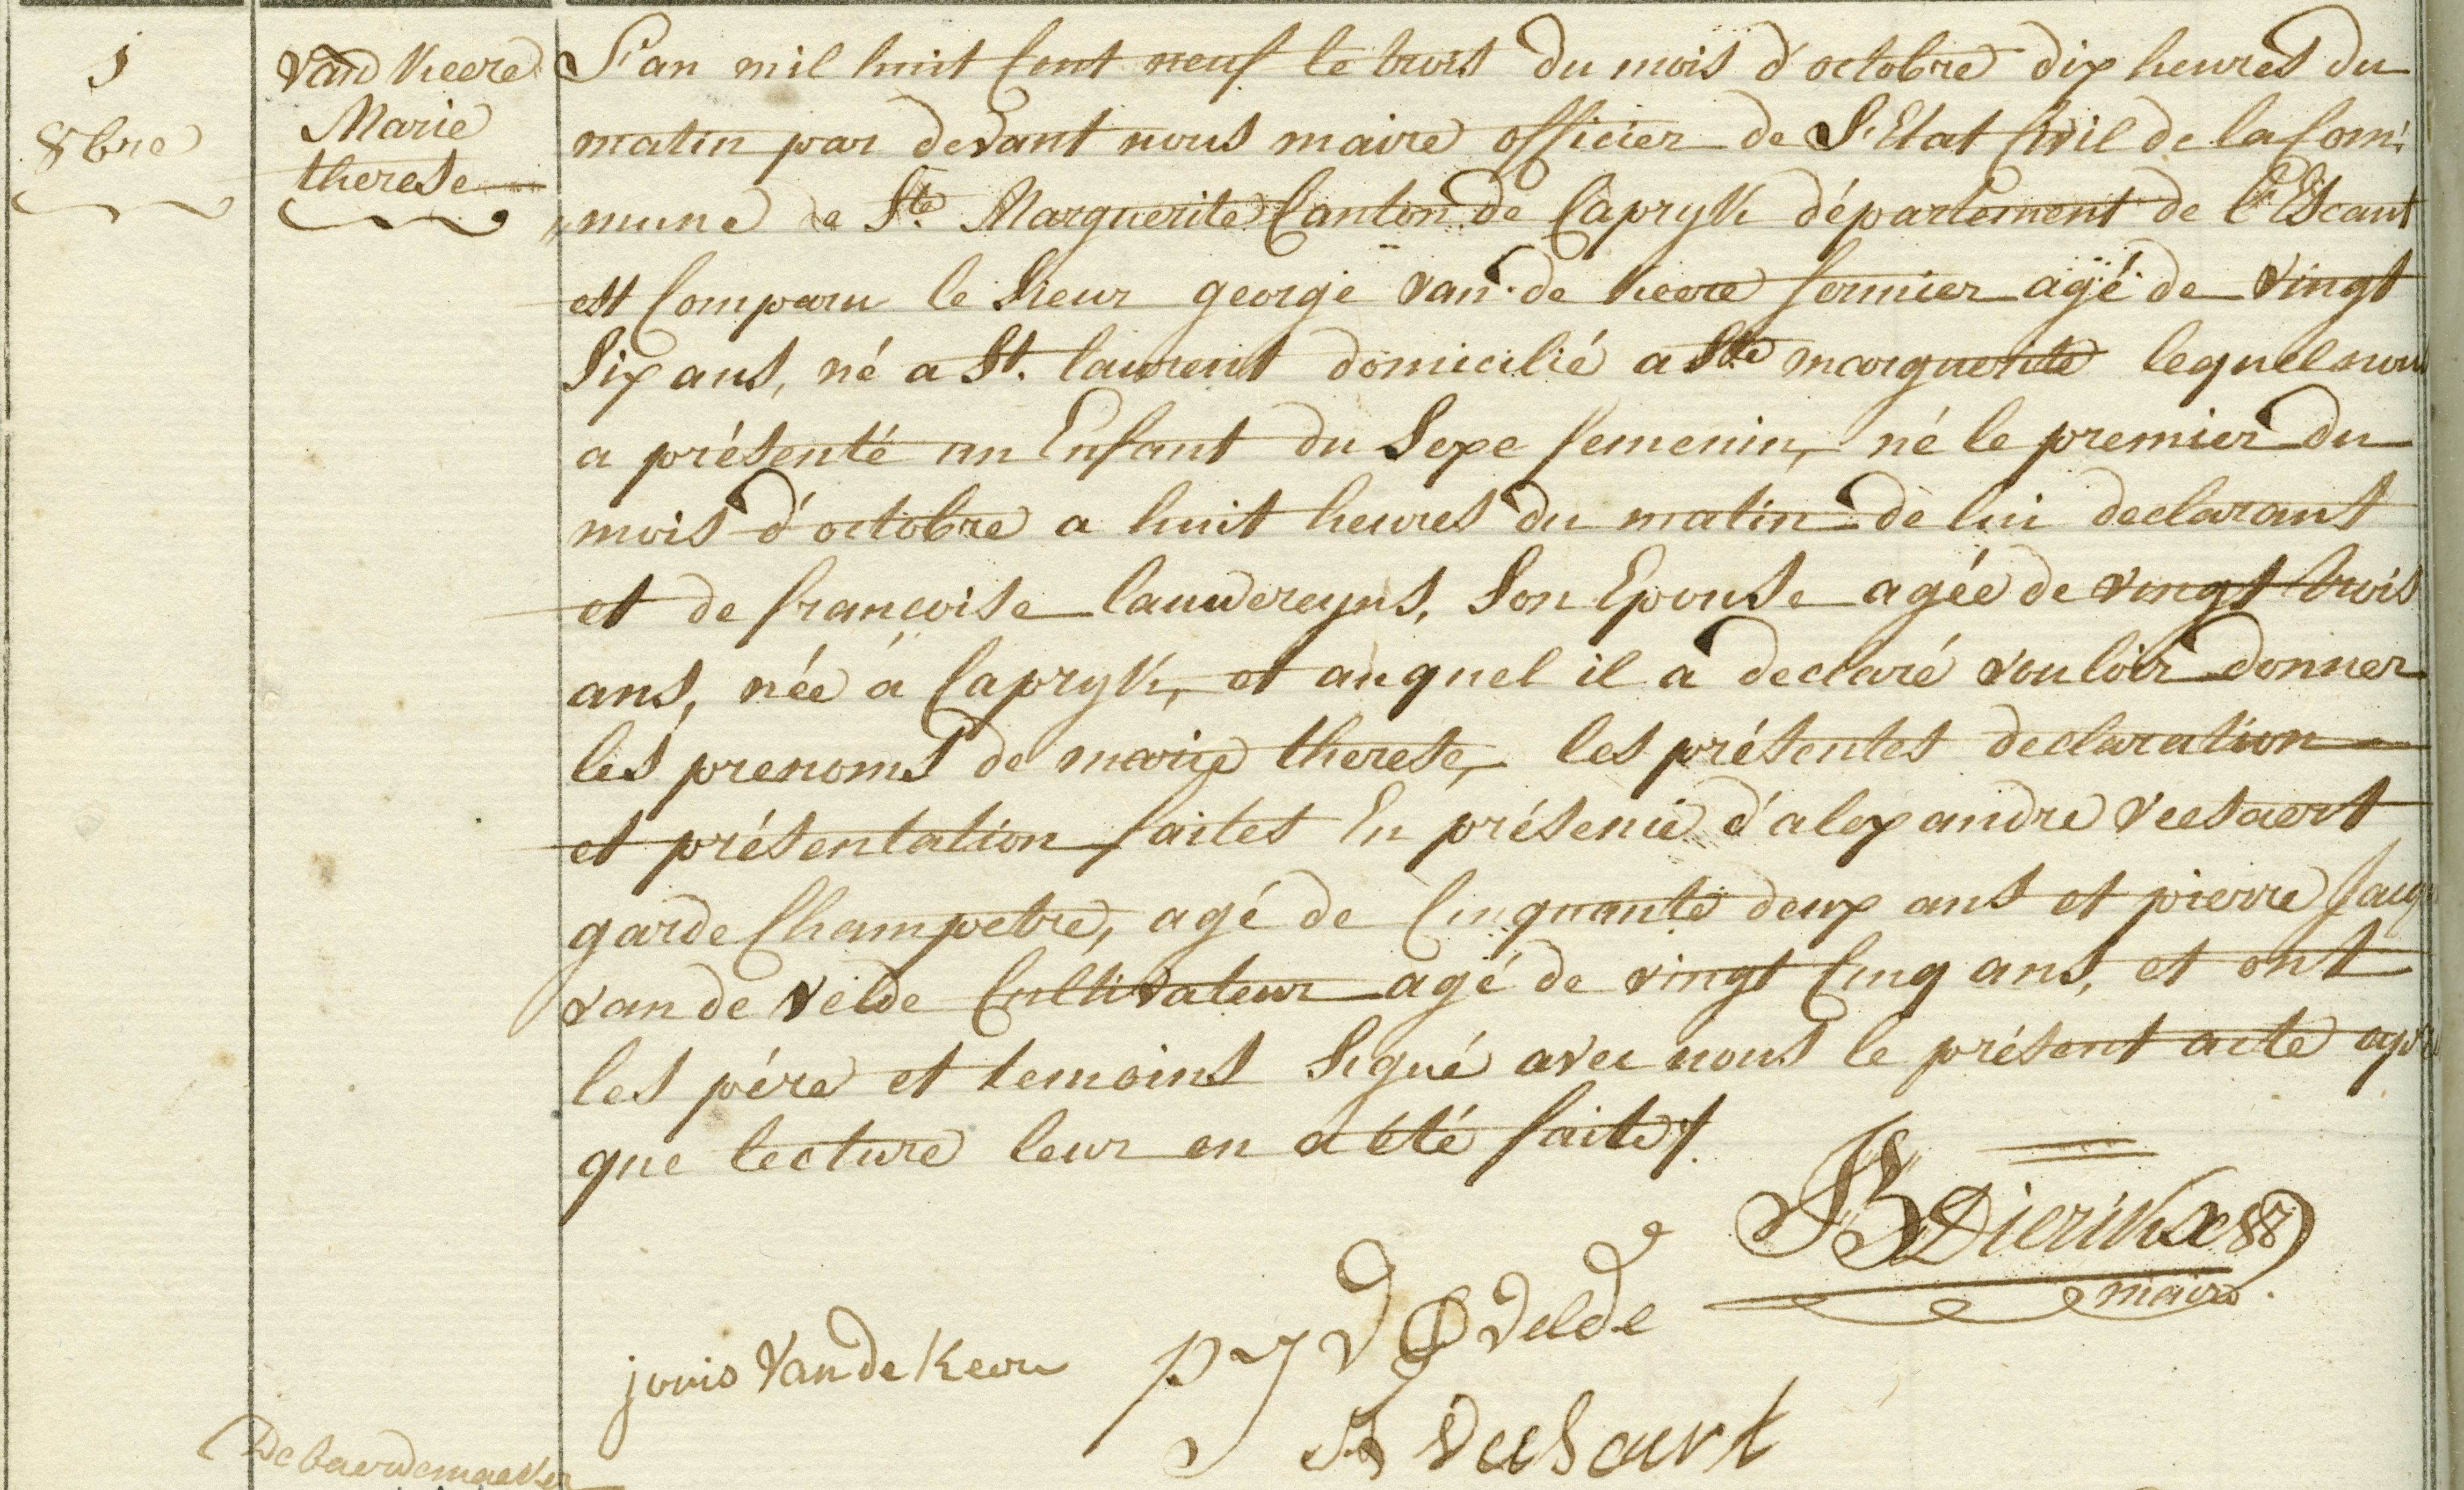 1
8bre
Vande Keere
Marie
therese
L'an mil huit Cent neuf le trois du mois d'octobre dix heures du
matin par devant nous maire officier de L'Etat Civil de la Com:
„mune de Ste. Marguerite Canton de Capryk département de l'Escaut
est Comparu le Sieur george van de Keere fermier agé de vingt
Six ans, né a St. laurent domicilié a Ste marguerite lequel nous
a présenté un Enfant du Sexe femenin, né le premier du
mois d'octobre a huit heures du matin de lui declarant
et de francoise lauwereyns, Son Epouse agée de vingt trois
ans, née à Capryk, et auquel il a declaré vouloir donner
les prenoms de marie therese, les présentes declaration
et présentation faites En présence d'alexandre veesaert
garde Champetre, agé de Cinquante deux ans et pierre Jacq
van de velde Cultivateur agé de vingt Cinq ans, et ont
les père et temoins Signé avec nous le présent acte après
que lecture leur en a été faite ./.
Dierikx
maire.
joris Van de Keere
P J V D Velde
A Veesaert
De baerdemaeker